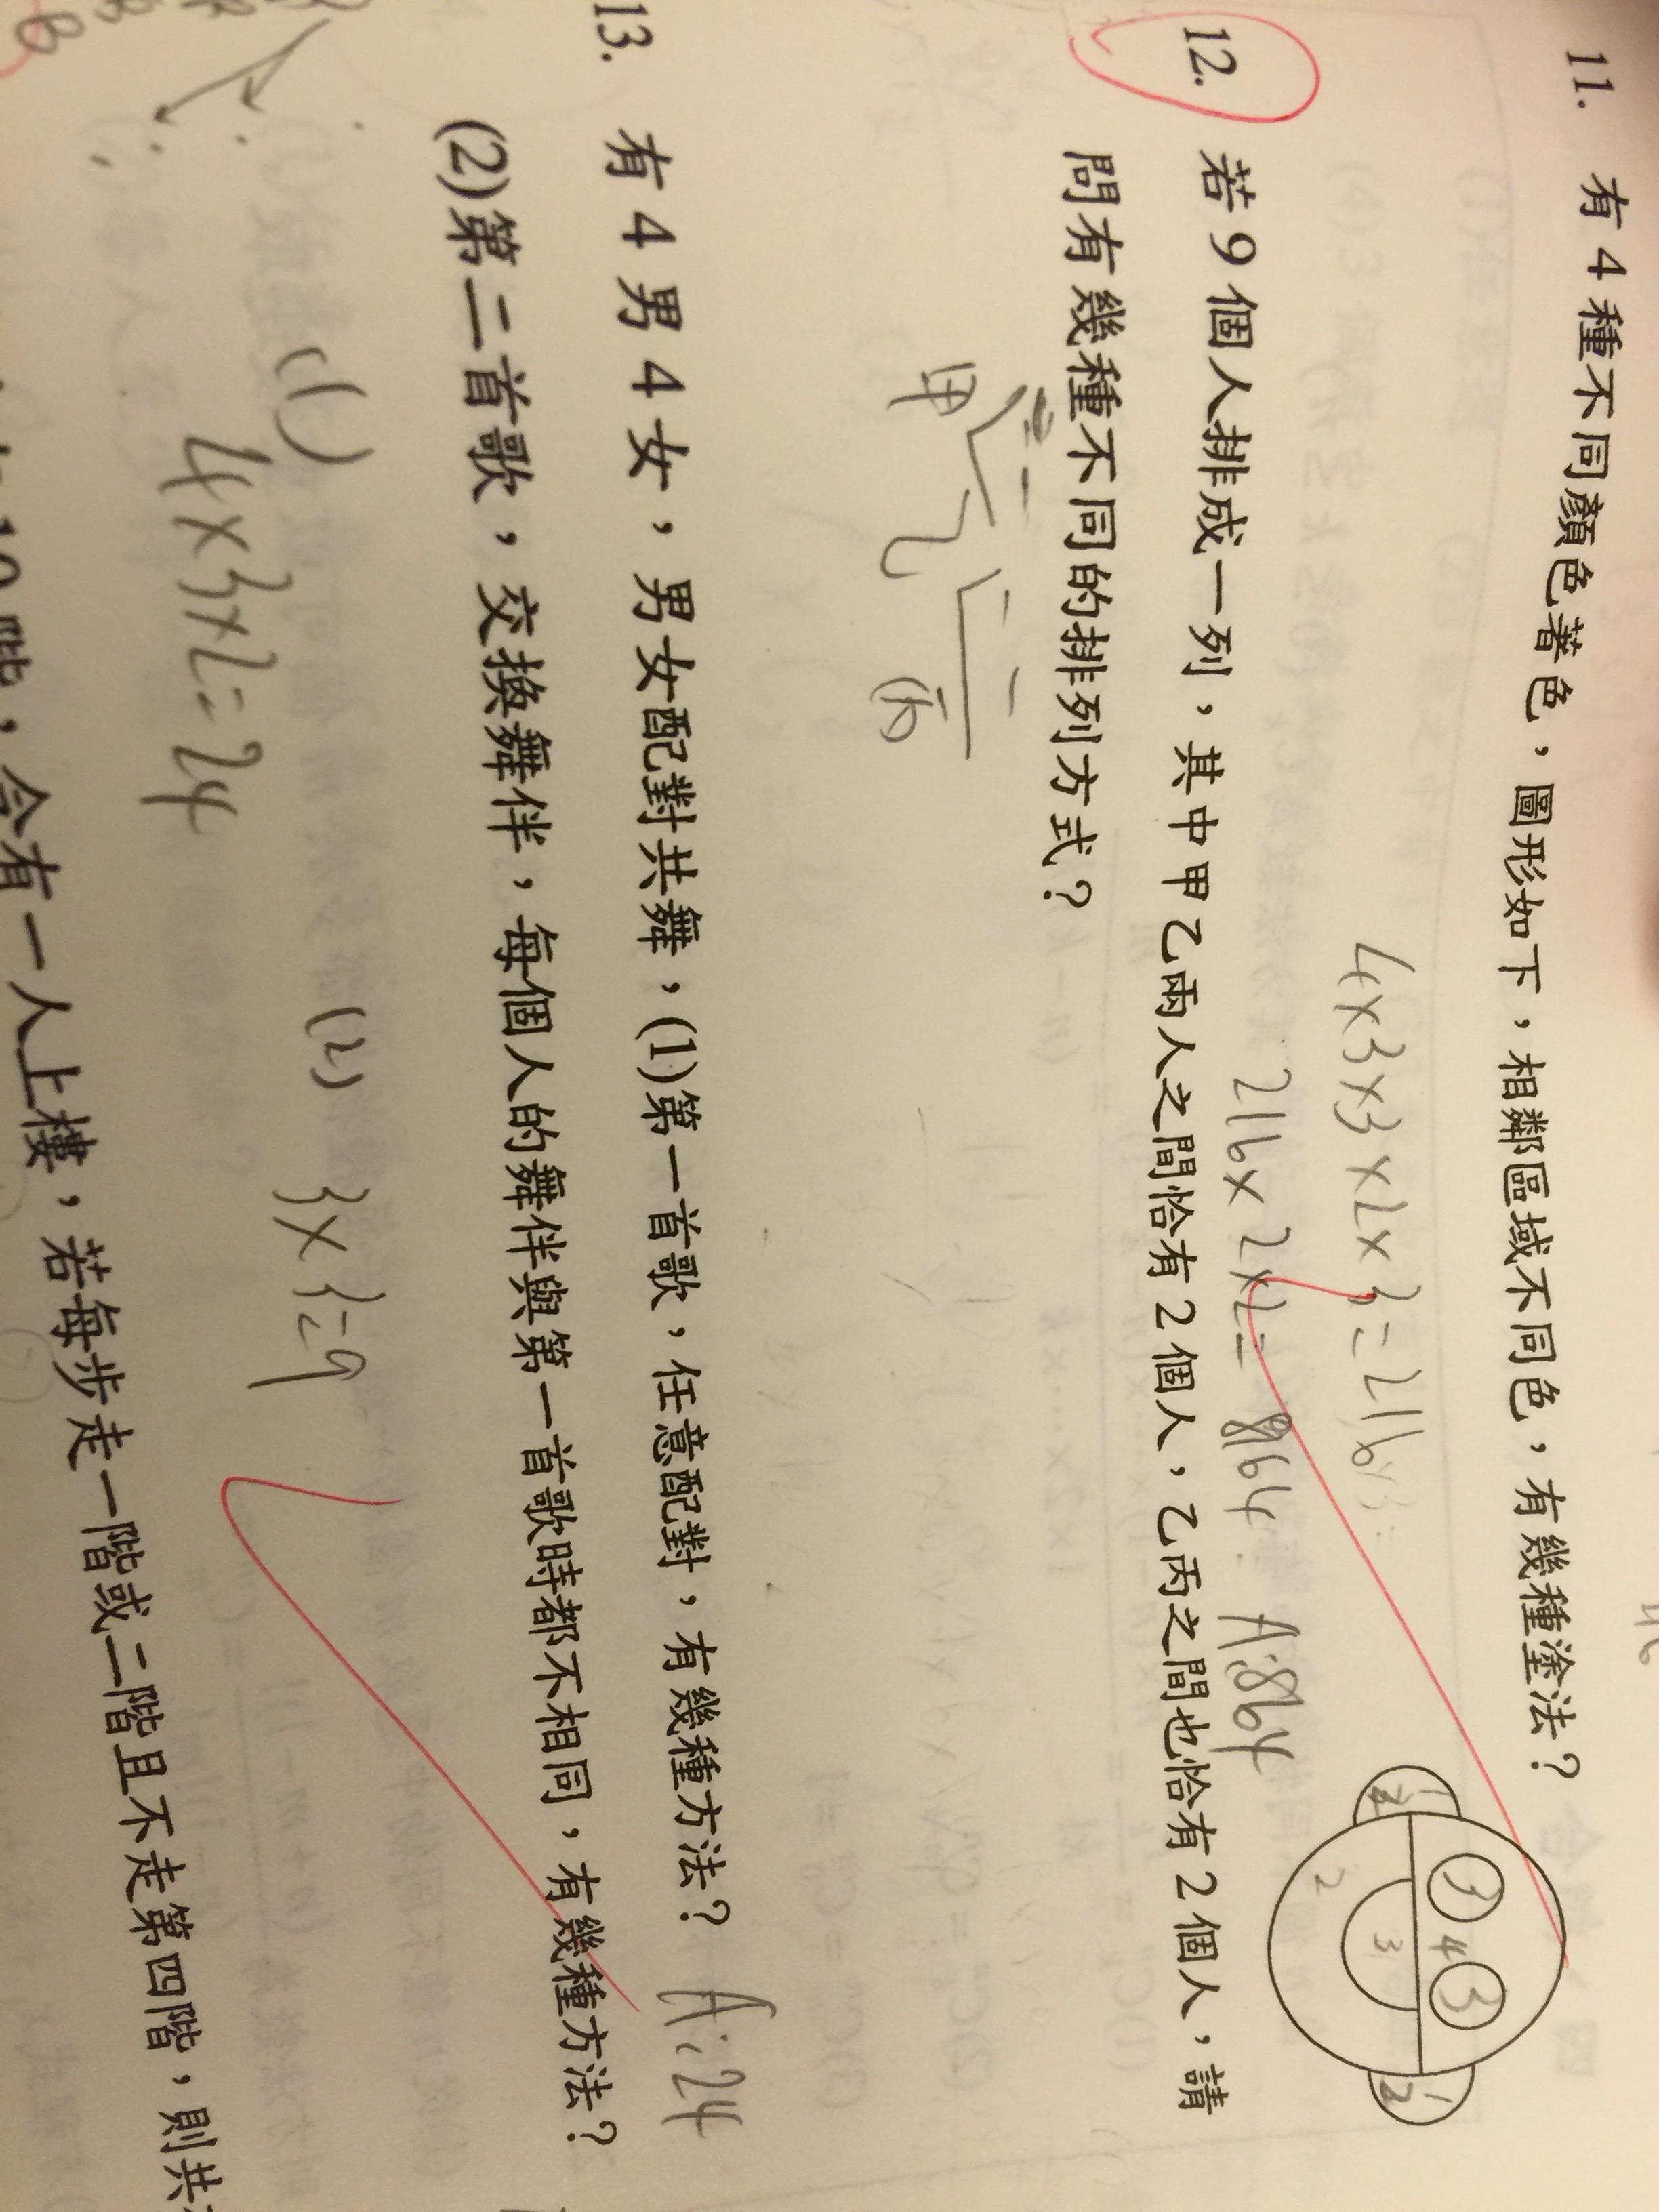 11. 有 4 種不同顏色著色，圖形如下，相鄰區域不同色，有幾種塗法？
4×3×3×2×3=216
216×2×2=864. A:864
3 4 3
3
2
2
12. 若 9 個人排成一列，其中甲乙兩人之間恰有 2 個人，乙丙之間也恰有 2 個人，請
問有幾種不同的排列方式？
甲 乙 丙
13. 有 4 男 4 女，男女配對共舞，(1)第一首歌，任意配對，有幾種方法？ A:24
(2)第二首歌，交換舞伴，每個人的舞伴與第一首歌時都不相同，有幾種方法？
(1) (2)
4×3×2=24 3×3=9
10階，令有一人上樓，若每步走一階或二階且不走第四階，則共